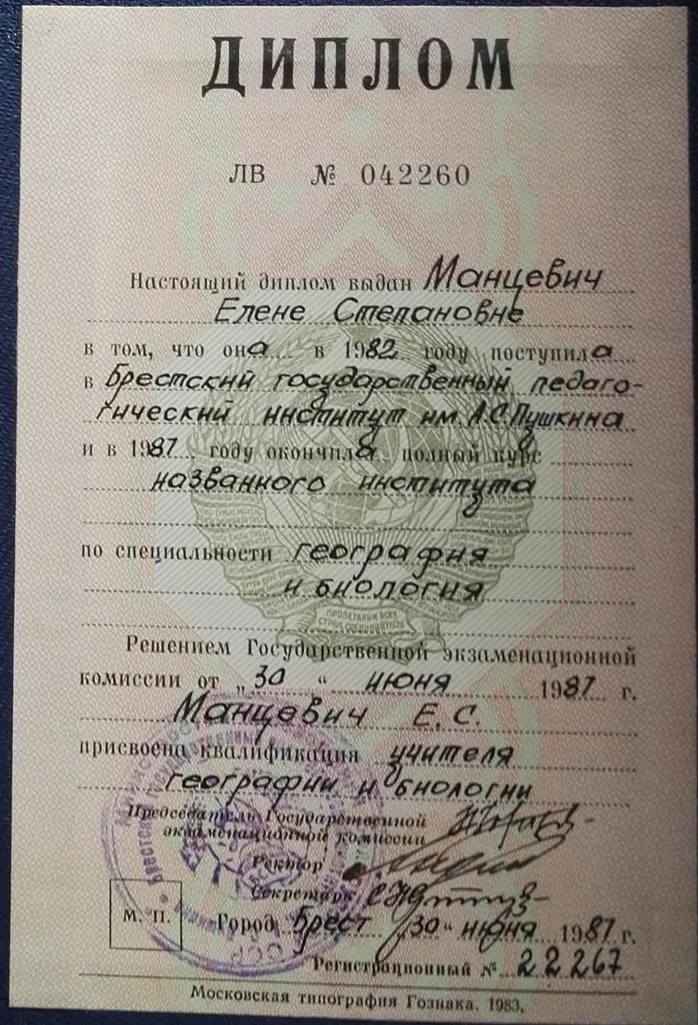 ДИПЛОМ
ЛВ № 042260
Настоящий диплом выдан Манцевич
Елене Степановне
в том, что она в 1982 году поступила
в Брестский государственный педаго-
гический институт им. А.С. Пушкина
и в 1987 году окончила полный курс
названного института
по специальности география
и биология
ПРОЛЕТАРИИ ВСЕХ
СТРАН, СОЕДИНЯЙТЕСЬ!
Решением Государственной экзаменационной
комиссии от „30“ июня 1987 г.
Манцевич Е. С.
присвоена квалификация учителя
географии и биологии
Председатель Государственной
экзаменационной комиссии
Ректор
Секретарь
М. П.
Город Брест „30“ июня 1987 г.
Регистрационный № 22267
Московская типография Гознака. 1983.